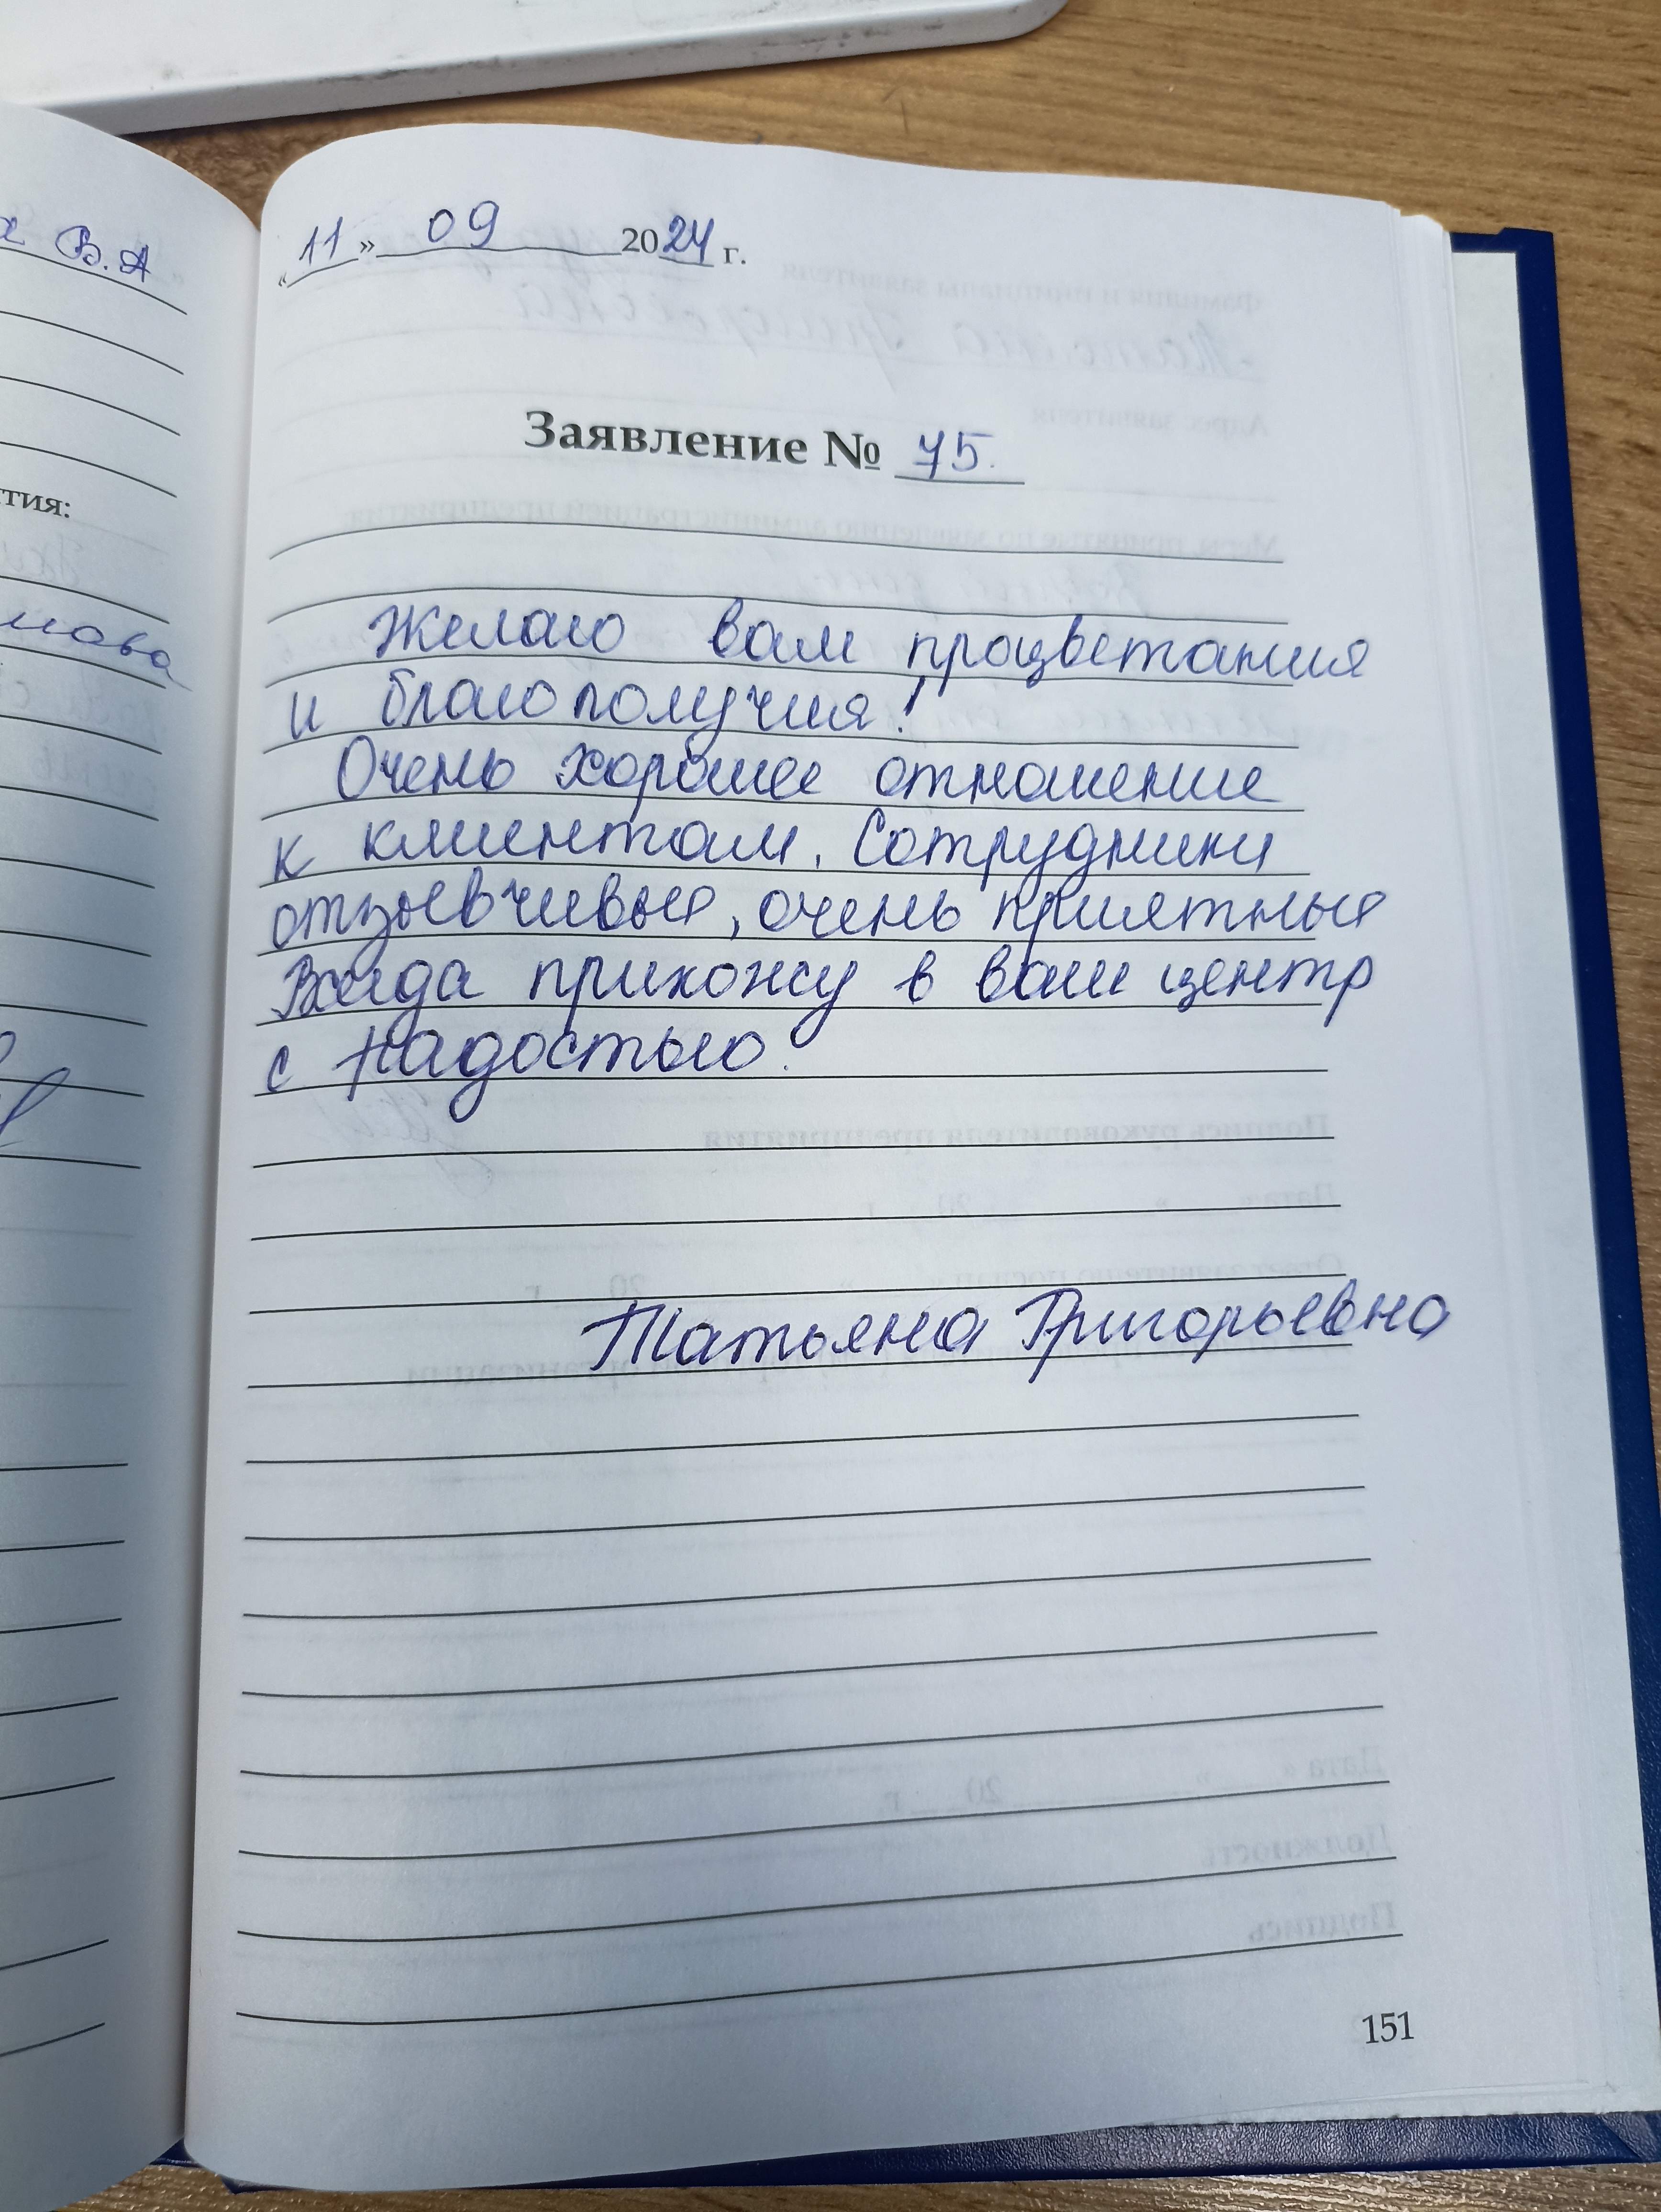 В.А
тия:
«11» 09 2024 г.
Заявление № 75.
Желаю вам процветания
и благополучия!
Очень хорошее отношение
к клиентам. Сотрудники
отзывчивые, очень приятные
Всегда прихожу в ваш центр
с радостью.
Татьяна Григорьевна
151